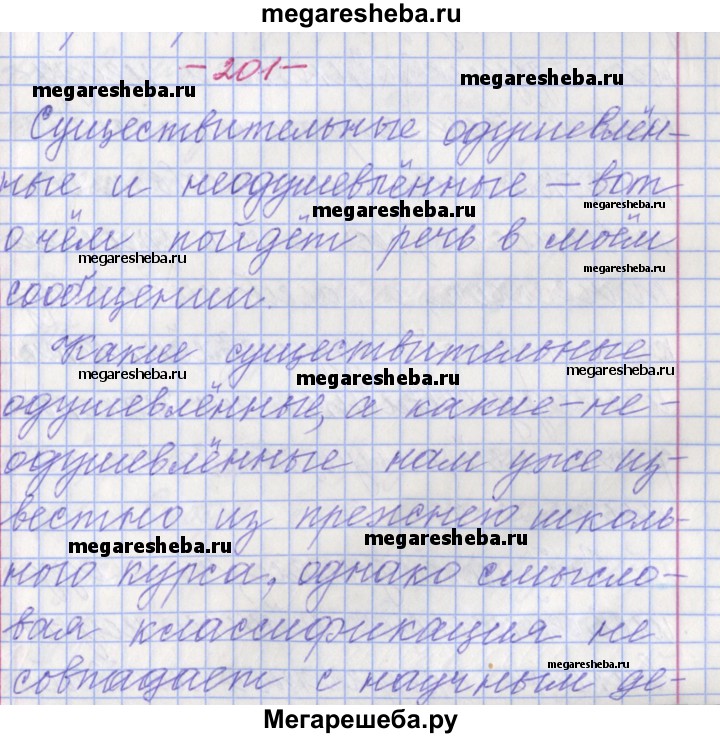 megaresheba.ru
- 201 -
megaresheba.ru
megaresheba.ru
Существительные одушевлён-
ные и неодушевлённые – вот
megaresheba.ru
megaresheba.ru
о чём пойдёт речь в моём
megaresheba.ru
megaresheba.ru
сообщении.
Какие существительные
megaresheba.ru
megaresheba.ru
megaresheba.ru
одушевлённые, а какие – не-
одушевлённые нам уже из-
вестно из прежнего школь-
megaresheba.ru
megaresheba.ru
ного курса, однако смысло-
вая классификация не
megaresheba.ru
совпадает с научным де-
Мегарешеба.ру